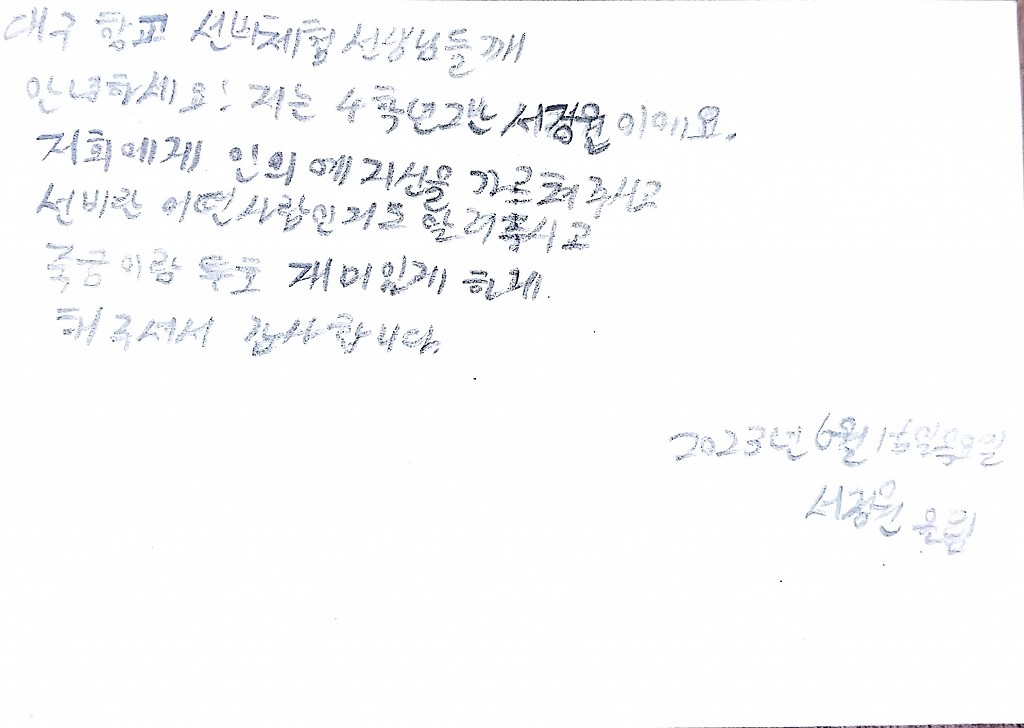 대구 향교 선비체험 선생님들께
안녕하세요! 저는 4학년2반 서정원이에요.
저희에게 인의예지신을 가르쳐주시고
선비란 어떤사람인지도 알려주시고
국궁이랑 투호 재미있게 하게
해주셔서 감사합니다.
2023년 6월 일목요일
서정원 올림